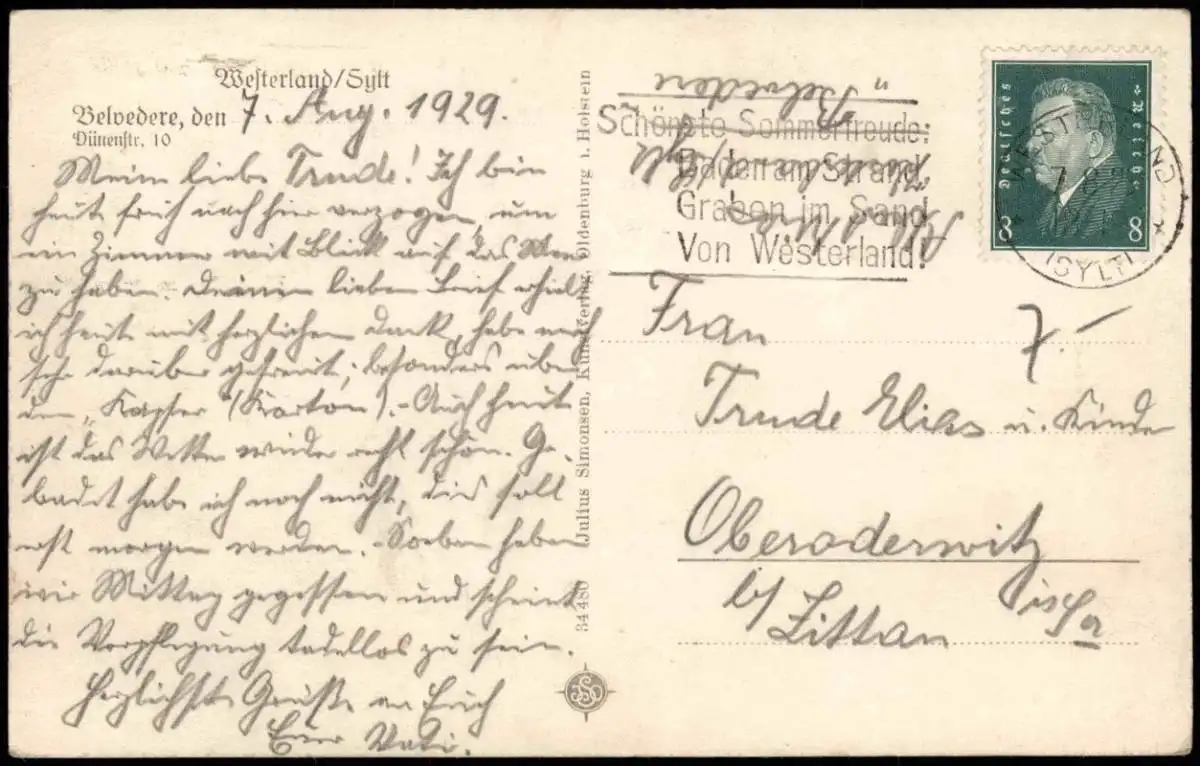 Westerland/Sylt
Belvedere, den 7. Aug. 1929.
Dünenstr. 10
Meine liebe Trude! Ich bin
heute früh nach hier verzogen, um
ein Zimmer mit Blick auf das Meer
zu haben. Deinen lieben Brief erhielt
ich heute mit herzlichem Dank, habe mich
sehr darüber gefreut; besonders über
den „Kasper" (Karton). - Auch heute
ist das Wetter wieder recht schön. Ge-
badet habe ich noch nicht, dies soll
erst morgen werden. - Soeben haben
wir Mittag gegessen und scheint
die Verpflegung tadellos zu sein.
Herzlichste Grüße an Euch
Euer Vati.
34486 Julius Simonsen, Kunstverlag, Oldenburg i. Holstein
"Belvedere
Schönste Sommerfreude:
Baden am Strand
Graben im Sand
Von Westerland!
Deutsches Reich
8 8
WESTERLAND
(SYLT)
7.-
Frau
Trude Elias u. Kinder
Oberoderwitz
b/ Zittau
i/Sa